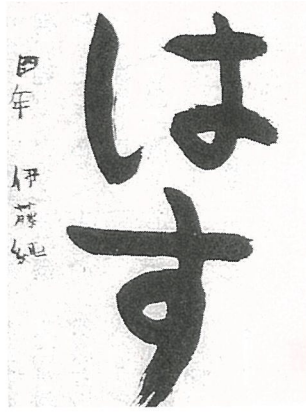 はす
四年 伊藤純